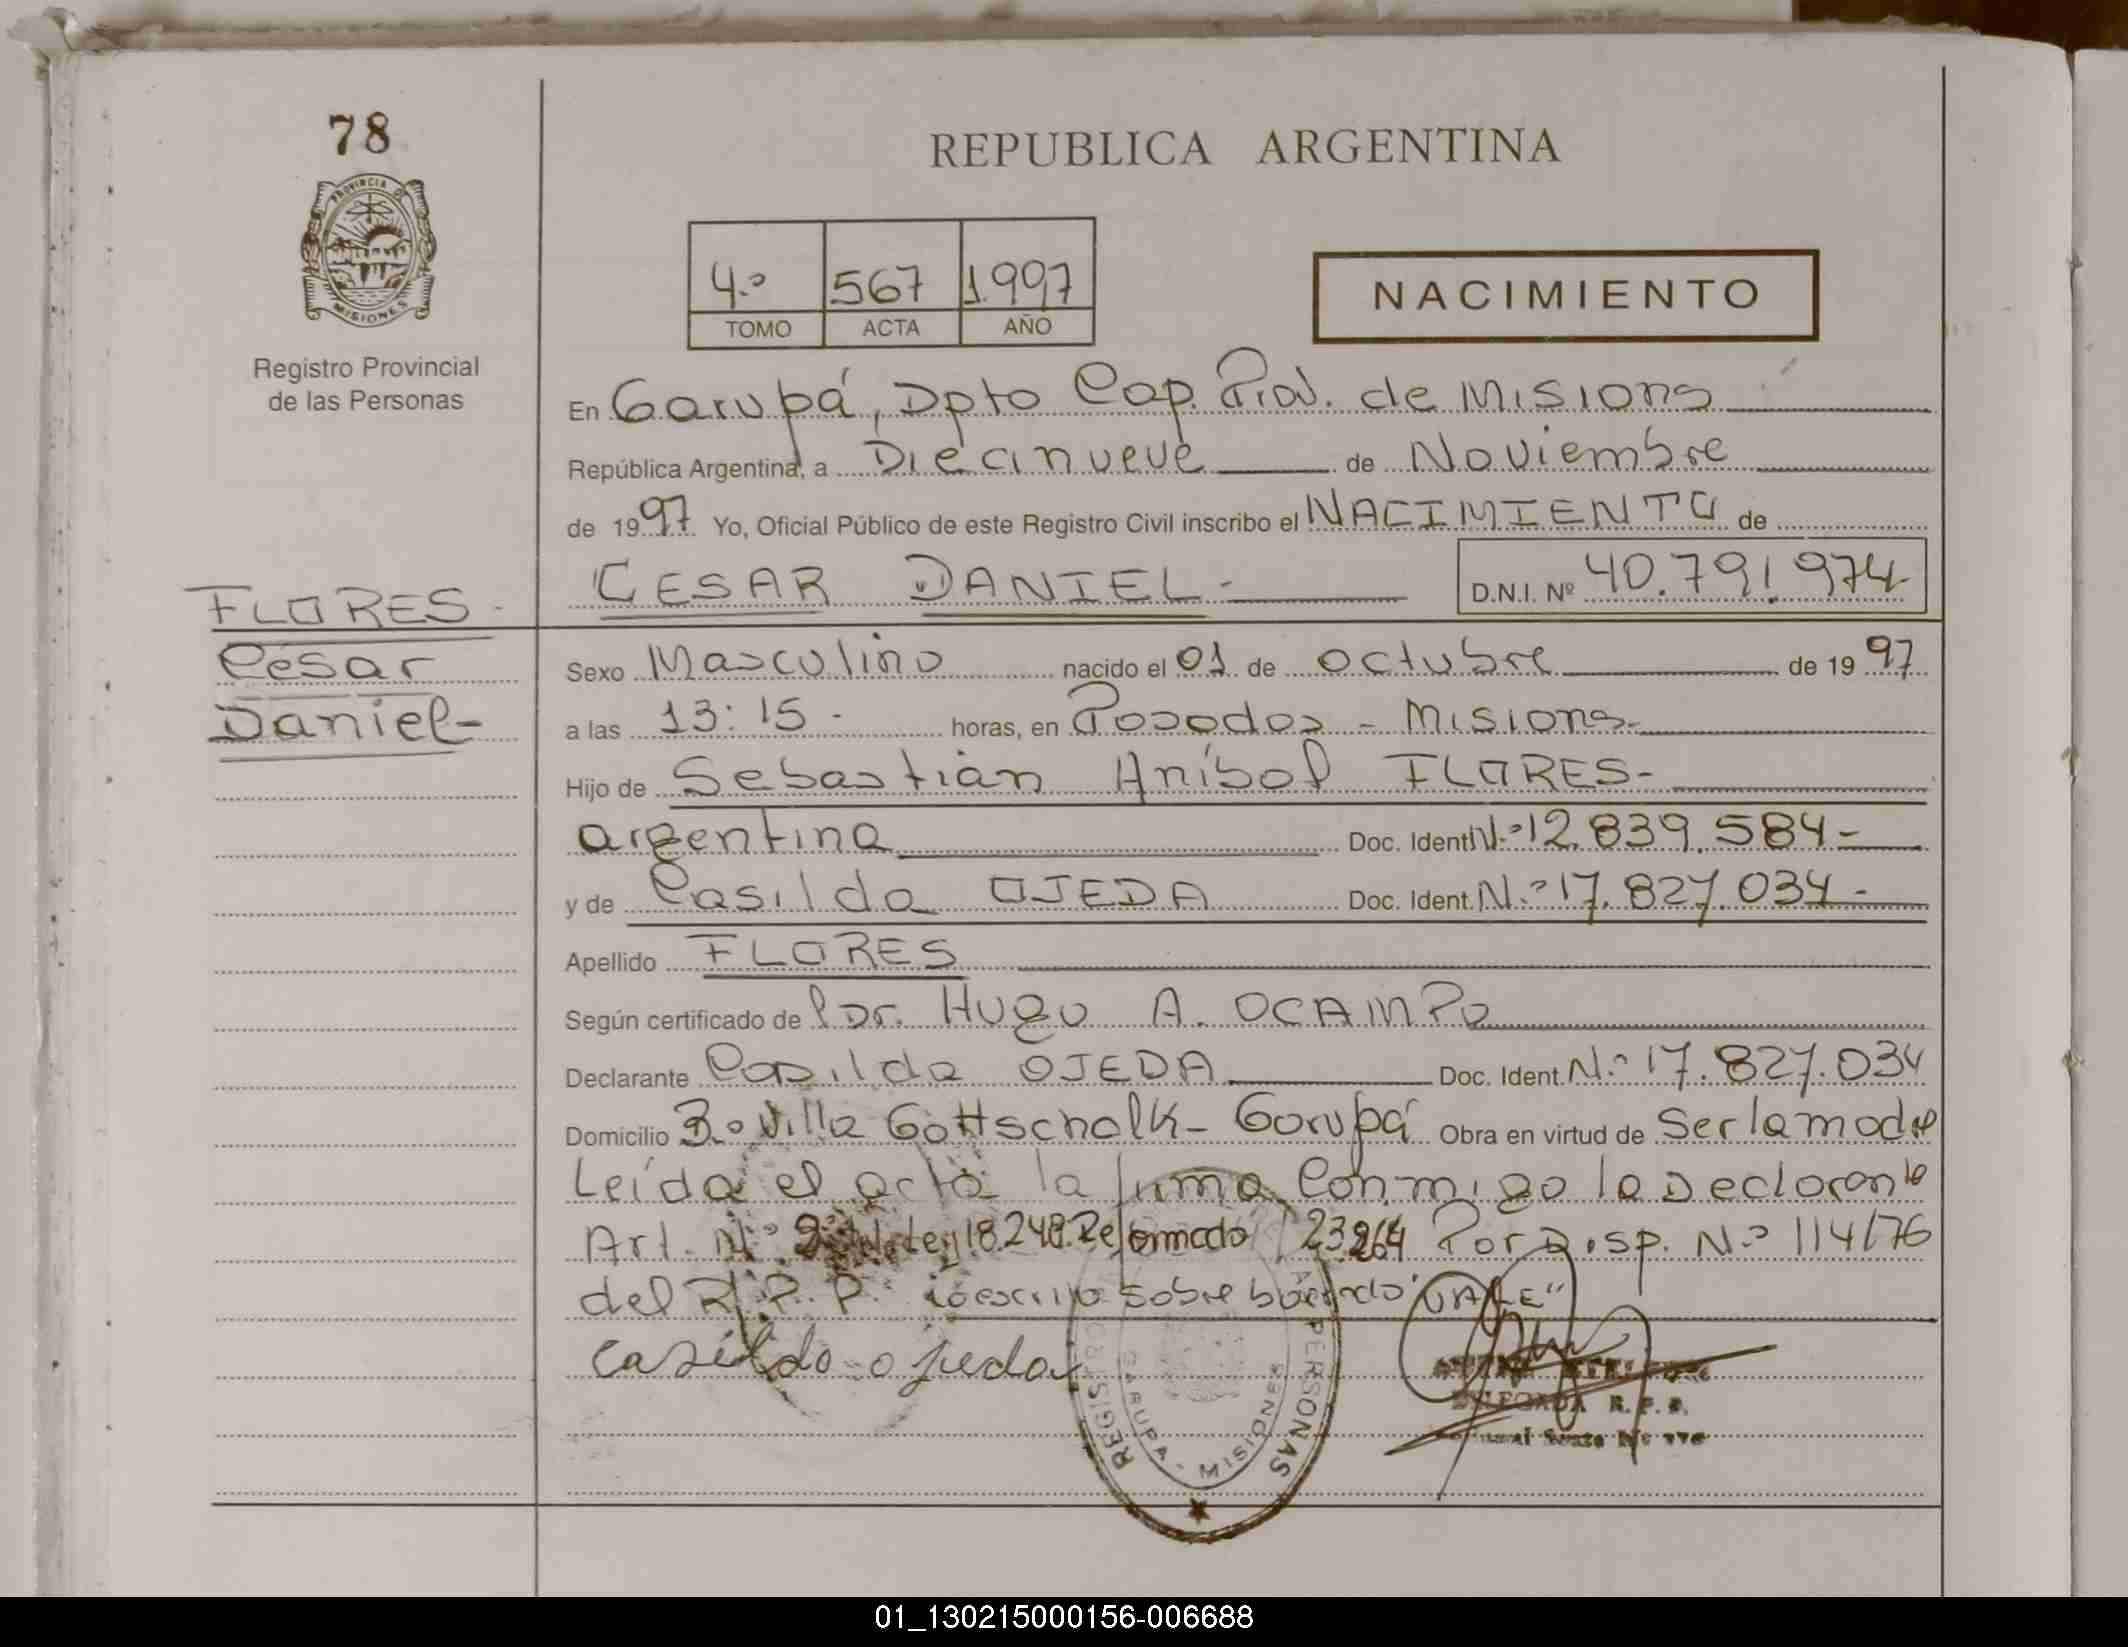 78
PROVINCIA D
MISIONES
Registro Provincial
de las Personas
FLORES -
César
Daniel -
REPUBLICA ARGENTINA
4.º 567 1.997
TOMO ACTA AÑO
NACIMIENTO
En Garupá, Dpto Cap. Prov. de Misions
República Argentina, a Diecinueve de Noviembre
de 1997 Yo, Oficial Público de este Registro Civil inscribo el NACIMIENTO de
CESAR DANIEL - D.N.I. Nº 40.791.974-
Sexo Masculino nacido el 01 de octubre de 1997
a las 13:15 - horas, en Posadas - Misions-
Hijo de Sebastián Aníbal FLORES-
argentina Doc. Ident. N.º 12.839.584-
y de Casilda OJEDA Doc. Ident. N.º 17.827.034-
Apellido FLORES
Según certificado de Dr. Hugo A. OCAMPO
Declarante Casilda OJEDA Doc. Ident. N.º 17.827.034
Domicilio B.º Villa Gottschalk - Garupá Obra en virtud de Ser la madre
Leída el acta la firma Conmigo la Declarante
Art. N.º 2º Ley 18.248 Reformado 23.264 Por Disp. N.º 114/76
del R.P.P. sobre borrado "VALE"
casilda ojeda
REGIS PERSONAS
GARUPA - MISIONES
DELEGADA R. P. P.
01_130215000156-006688